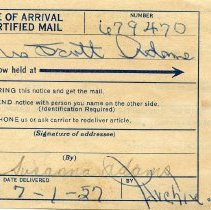 E OF ARRIVAL
ERTIFIED MAIL
NUMBER
679470
Scott Adams
ow held at
RING this notice and get the mail.
END notice with person you name on the other side.
(Identification Required)
HONE us or ask carrier to redeliver article.
(Signature of addressee)
(By)
Adams
DATE DELIVERED
(By)
7-1-57
Archie